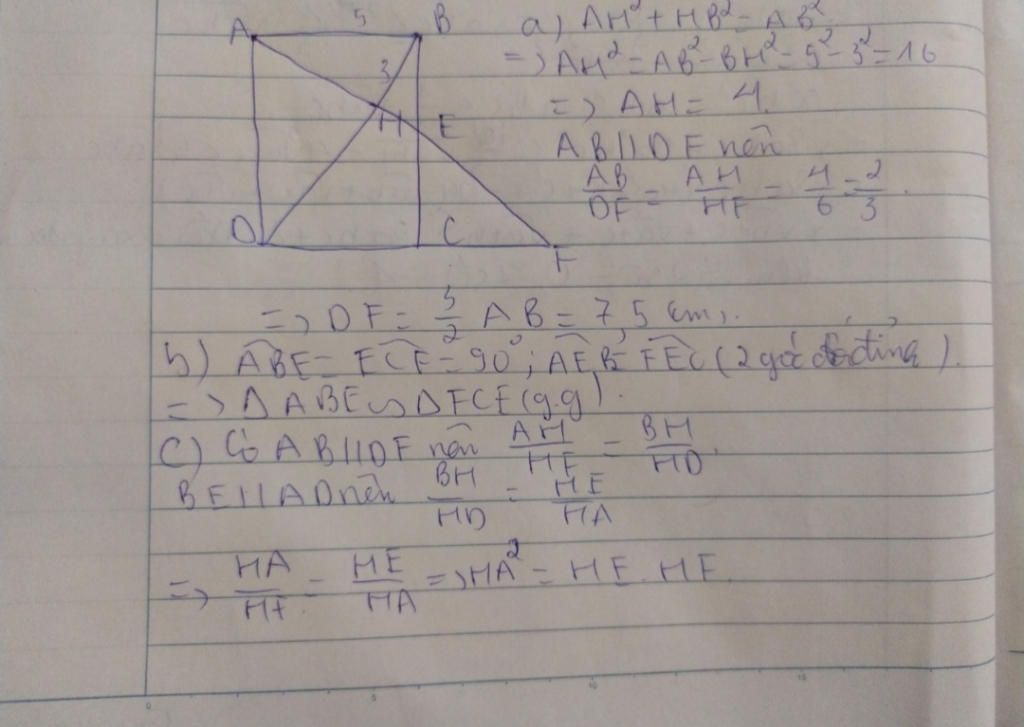 A 5 B
3
H E
D C F
a) AH² + HB² = AB²
=> AH² = AB² - BH² = 5² - 3² = 16
=> AH = 4.
AB // DF nên
AB/DF = AH/HF = 4/6 = 2/3.
=> DF = 3/2 AB = 7,5 cm.
b) ABE = ECF = 90°; AEB = FEC (2 góc đối đỉnh).
=> Δ ABE ∽ Δ FCE (g.g).
c) Có AB // DF nên AH/HF = BH/HD.
BE // AD nên BH/HD = HE/HA
=> HA/HF = HE/HA => HA² = HE. HF.
0 5 10 15